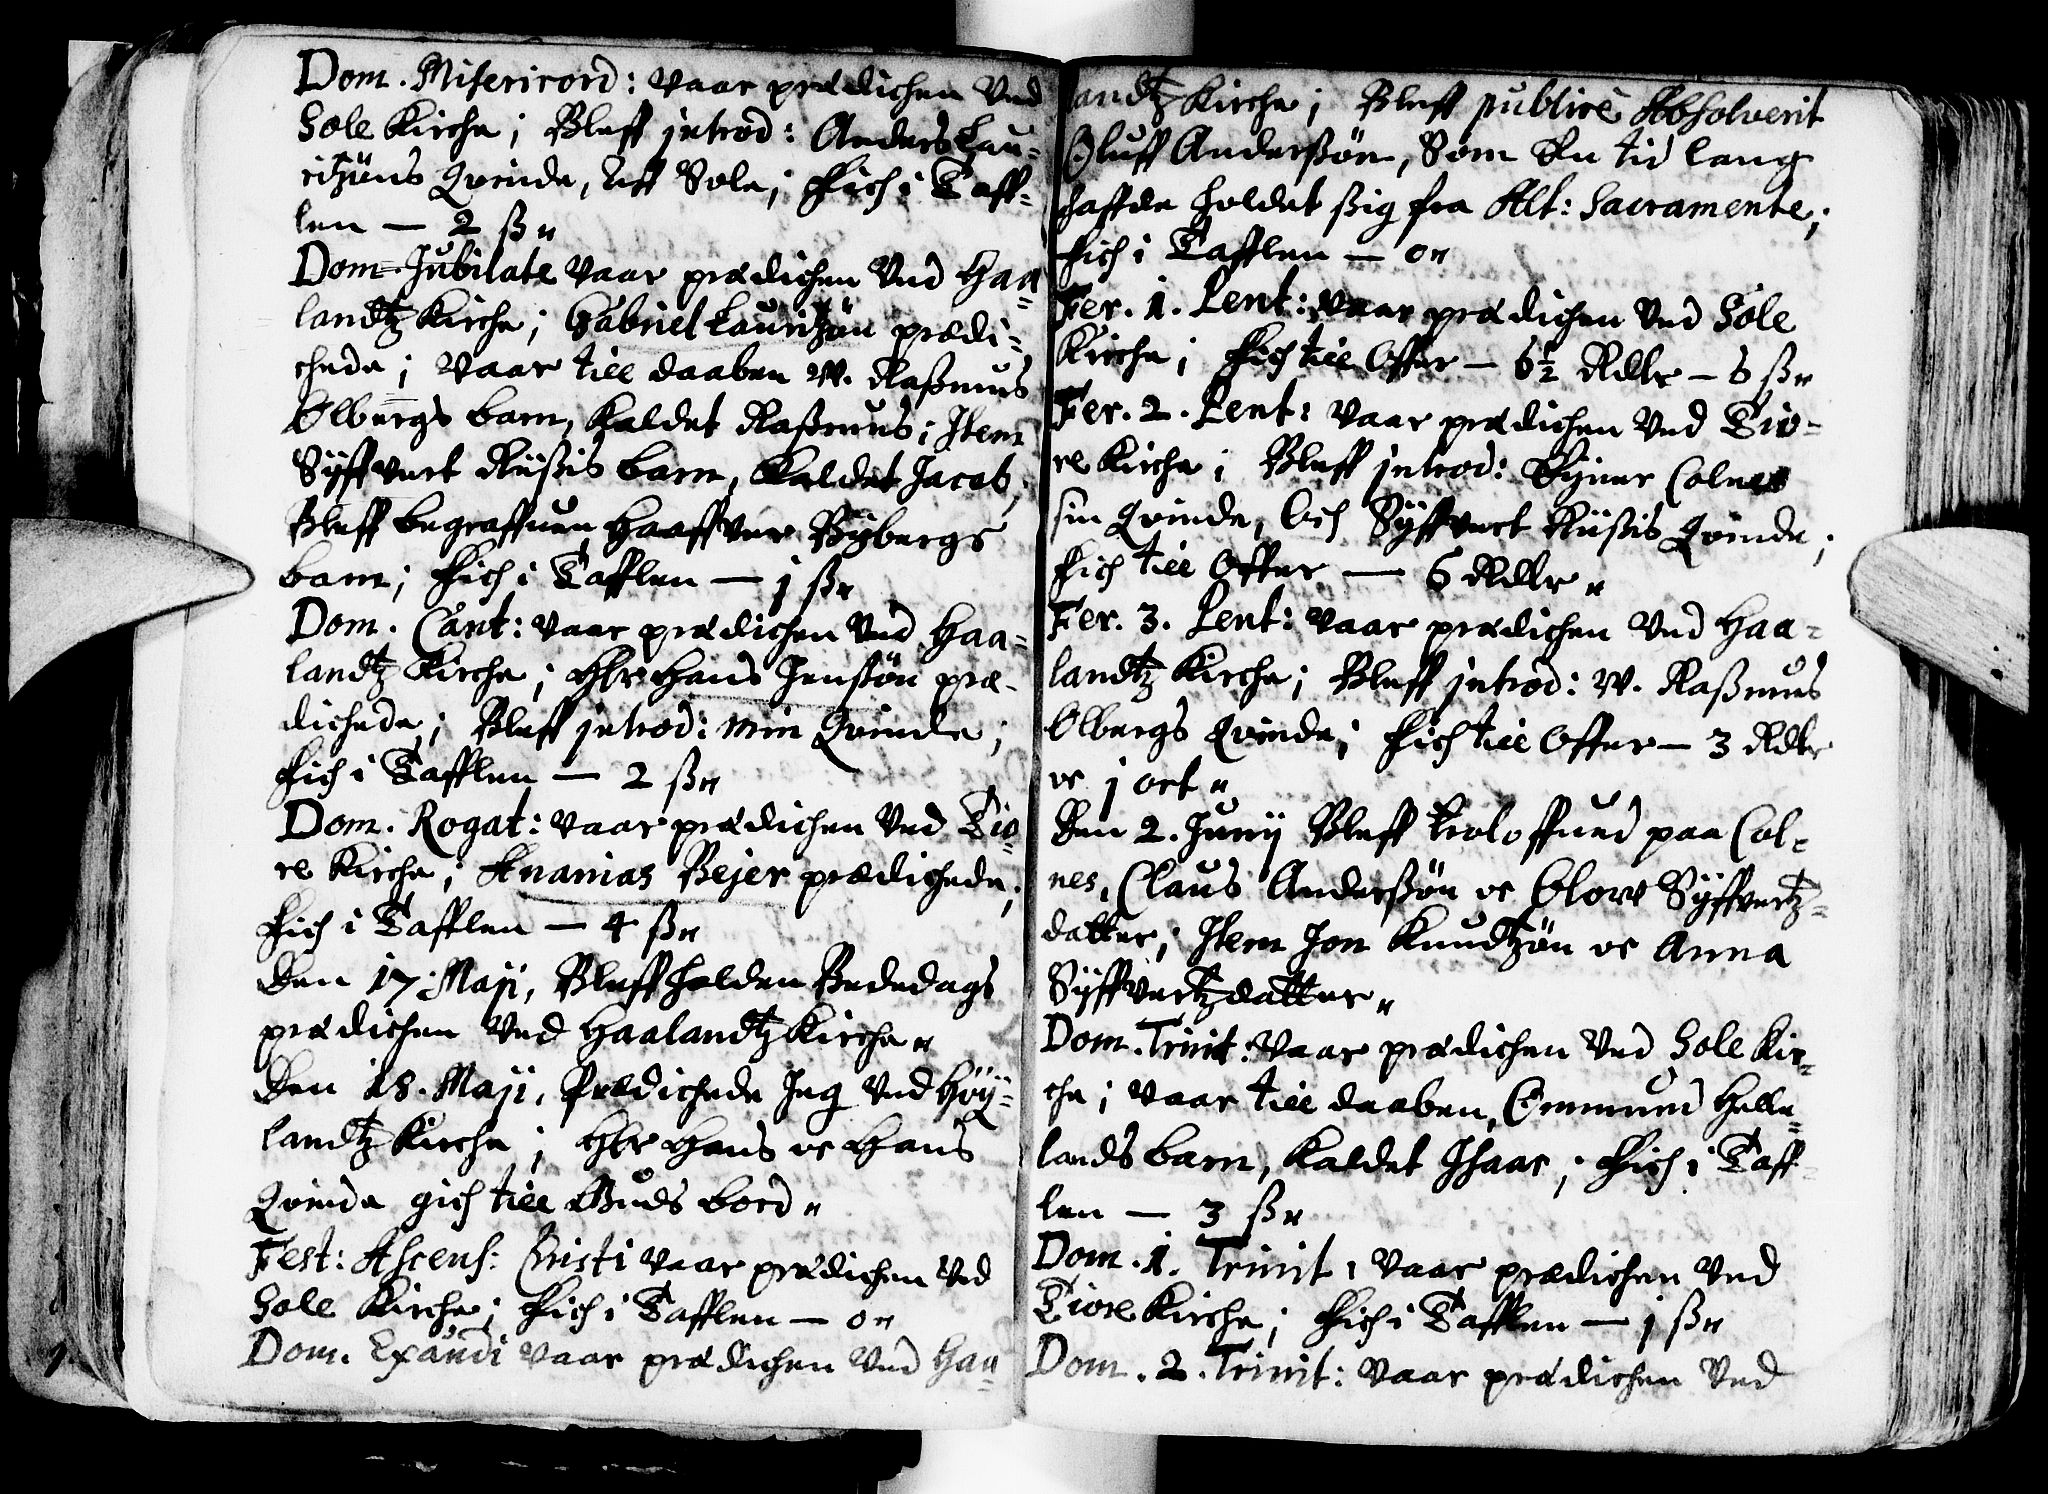 Dom. Misericord: vaar prædichen ved
Sole Kirche; Bleff introd: Anders Lau-
ritzöns Qvinde, aff Sole; Fich i Taff-
len — 2 ß„
Dom. Jubilate vaar prædichen ved Haa-
landtz Kirche; Gabriel Lauritzön prædi-
chede; vaar till daaben W. Raßmus
Olbergs barn, Kaldet Raßmus; Item
Syffvert Riißis barn, Kaldet Jacob,
Bleff begraffuen Haaffver Bybergs
barn; Fich i Tafflen — j ß„
Dom. Cant: vaar prædichen ved Haa-
landtz Kirche; Hr Hans Jensön præ-
dichede; Bleff introd: min Qvinde;
Fich i Tafflen — 2 ß„
Dom. Rogat: vaar prædichen ved Tio-
re Kirche; Ananias Bejer prædichede;
Fich i Tafflen — 4 ß„
Den 17 Maji, Bleff holden Bededags
prædichen ved Haalandtz Kirche„
Den 18. Maji, Prædichede Jeg ved Höy-
landtz Kirche; Hr Hans oc Hans
Qvinde gich till Guds bord„
Fest: Ascens: Christi vaar prædichen ved
Sole Kirche; Fich i Tafflen — 0„
Dom. Exaudi vaar prædichen ved Haa-
landtz Kirche; Bleff publicè Absolverit
Oluff Anderßön, Som En tid lang
haffde holdet ßig fra Alt: Sacramente;
Fich i Tafflen — 0„
Fer. 1. Pent: vaar prædichen ved Sole
Kirche; Fich till Offer — 6½ Rdlr — 6 ß„
Fer. 2. Pent: vaar prædichen ved Tio-
re Kirche; Bleff introd: Colnes
sin Qvinde, Och Syffvert Riißis Qvinde;
Fich till Offer — 6 Rdlr„
Fer. 3. Pent: vaar prædichen ved Haa-
landtz Kirche; Bleff introd: W. Raßmus
Olbergs Qvinde; Fich till Offer — 3 Rdlr
oc j ort„
Den 2. Junij Bleff troloffued paa Col-
nes, Claus Anderßön oc Olow Syffvertz-
datter; Item Jon Knudtzön oc Anna
Syffvertzdatter„
Dom. Trinit: vaar prædichen ved Sole Kir-
che; vaar till daaben, Ommund Helle-
lands barn, Kaldet Isaac; Fich i Taff-
len — 3 ß„
Dom. 1. Trinit: vaar prædichen ved
Tiore Kirche; Fich i Tafflen — j ß„
Dom. 2. Trinit: vaar prædichen ved